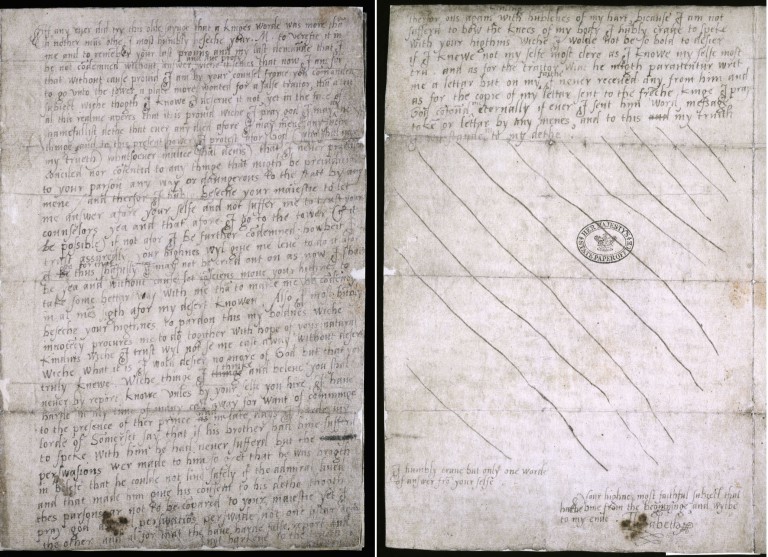 If any ever did try this olde saynge that a kinges worde was more than
a nother mas othe I most humbly beseche your M. to verefie it in
me and to remember your last promis and my last demande that I
be not condemned without answer and due profe
wiche it semes that now I am for
that without cause provid I am by your counsel frome you commanded
to go unto the tower a place more wonted for a false traitor, tha a tru
subject wiche thogth I knowe I deserve it not, yet in the face of
al this realme aperes that it is provid wiche I pray god I may
shamefullist dethe that ever any died afore I may mene any suche
thinge and to this present hower I protest afor God
my truth, whatsoever malice shal devis that I never practised
conciled nor consented to any thinge that might be prejudicial
to your parson any way or daungerous to the stat by any
mene and therfor I humbly beseche your maiestie to let
me answer afore your selfe and not suffer me to trust your
counselors yea and that afore I go to the tower
be possible if not afor I be further condemned howbeit
trust assuredly your highnes wyl give me leve to do it afor I
go for that thus shamfully I may not be cried out on as now I shal
be yea and without cause let consciens move your highnes to
take some bettar way with me tha to make me be condemned
in al mes sigth afor my desert knowen. Also I most humbly
beseche your higthnes to pardon this my boldnes wiche
innocency procures me to do together with hope of your natural
kindnis wiche I trust wyl not se me cast away without desert
wiche what it is I wold desier no more of God but that you
truly knewe. Wiche thinge I thinke and beleve you shal
never by report knowe unles by your selfe you hire. I have
harde in my time of many cast away for want of comminge
to the presence of ther prince and in late days I harde my
lorde of Somerset say that if his brother had bine sufferd
to speke with him he had never sufferd but the
perswasions wer made to him so gret that he was brogth
in belefe that he coulde not live safely if the admiral lived
and that made him give his consent to his dethe thogth
thes parsons ar not to be compared to your maiestie yet I
pray god perswasions perswade not one sistar
the other and al for that the have harde false report and
not harkene to the
therfor ons again with hublenes of my hart, bicause I am not
sufferd to bow the knees of my body I hubly crave to speke
with your higthnis wiche I wolde not be so bold to desier
if I knewe not my selfe most clere as I knowe my selfe most
tru. and as for the traitor Wiat he migth paraventur writ
me a lettar but on my faithe I never received any from him and
as for the copie of my lettar sent to the freche kinge I pray
God confound me eternally if ever I sent him word, message,
token or lettar by any menes, and to this my truith
to my dethe
I humbly crave but only one worde
of answer fro your selfe
Your hiohnes most faithful subject that
hathe bine from the beginninge and wylbe
to my ende
HER MAJESTY'S STATE PAPER OFFICE